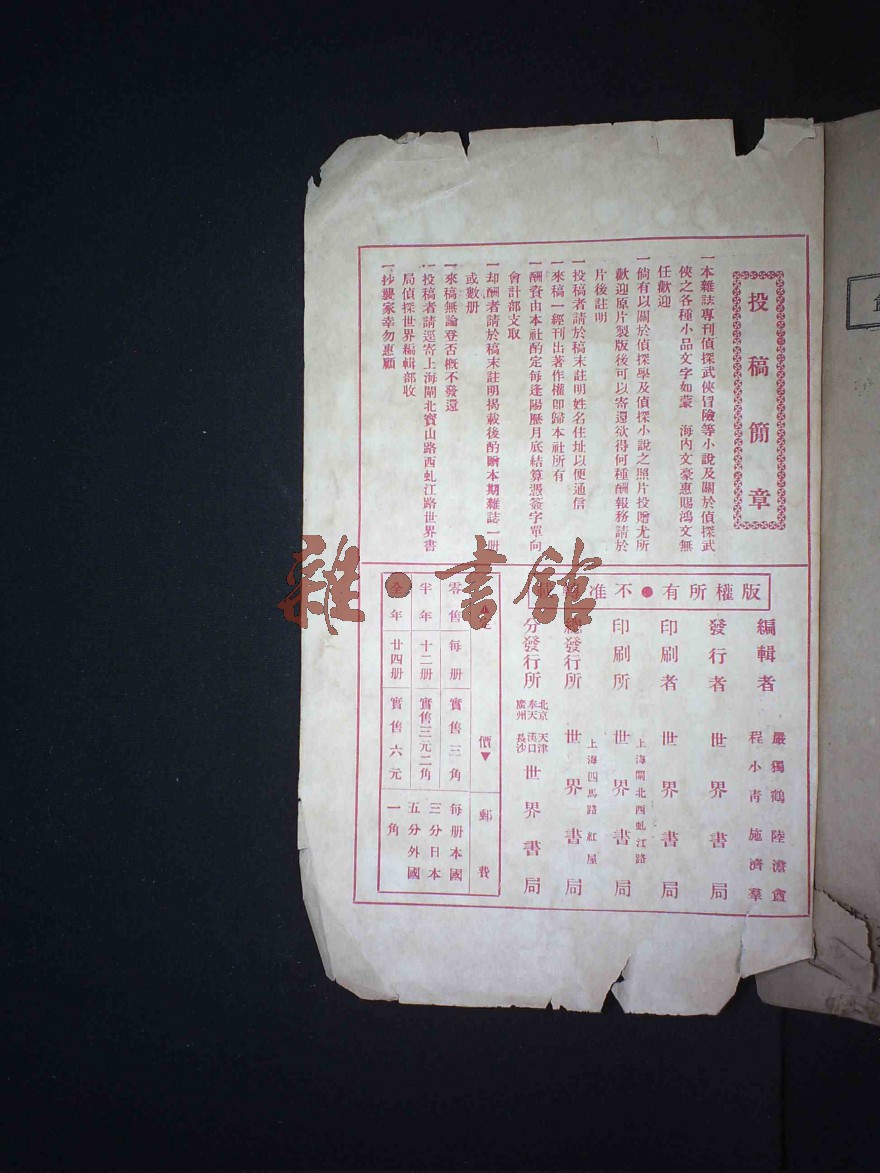 投稿簡章
一本雜誌專刊偵探武俠冒險等小說及關於偵探武
俠之各種小品文字如蒙　海內文豪惠賜鴻文無
任歡迎
一倘有以關於偵探學及偵探小說之照片投贈尤所
歡迎原片製版後可以寄還欲得何種酬報務請於
片後註明
一投稿者請於稿末註明姓名住址以便通信
一來稿一經刊出著作權卽歸本社所有
一酬資由本社酌定每逢陽曆月底結算憑簽字單向
會計部支取
一却酬者請於稿末註明揭載後酌贈本期雜誌一册
或數册
一來稿無論登否概不發還
一投稿者請逕寄上海閘北寶山路西虬江路世界書
局偵探世界編輯部收
一抄襲家幸勿惠顧
版權所有●不准
編輯者　嚴獨鶴　陸澹盦
程小靑　施濟羣
發行者　世界書局
印刷者　世界書局
上海閘北西虬江路
印刷所　世界書局
上海四馬路紅屋
總發行所　世界書局
分發行所　北京　天津　奉天　漢口　廣州　長沙　世界書局
價▼　郵費
零售　每册　實售三角　每册本國
半年　十二册　實售三元二角　三分日本
全年　廿四册　實售六元　五分外國
一角
雜·書館